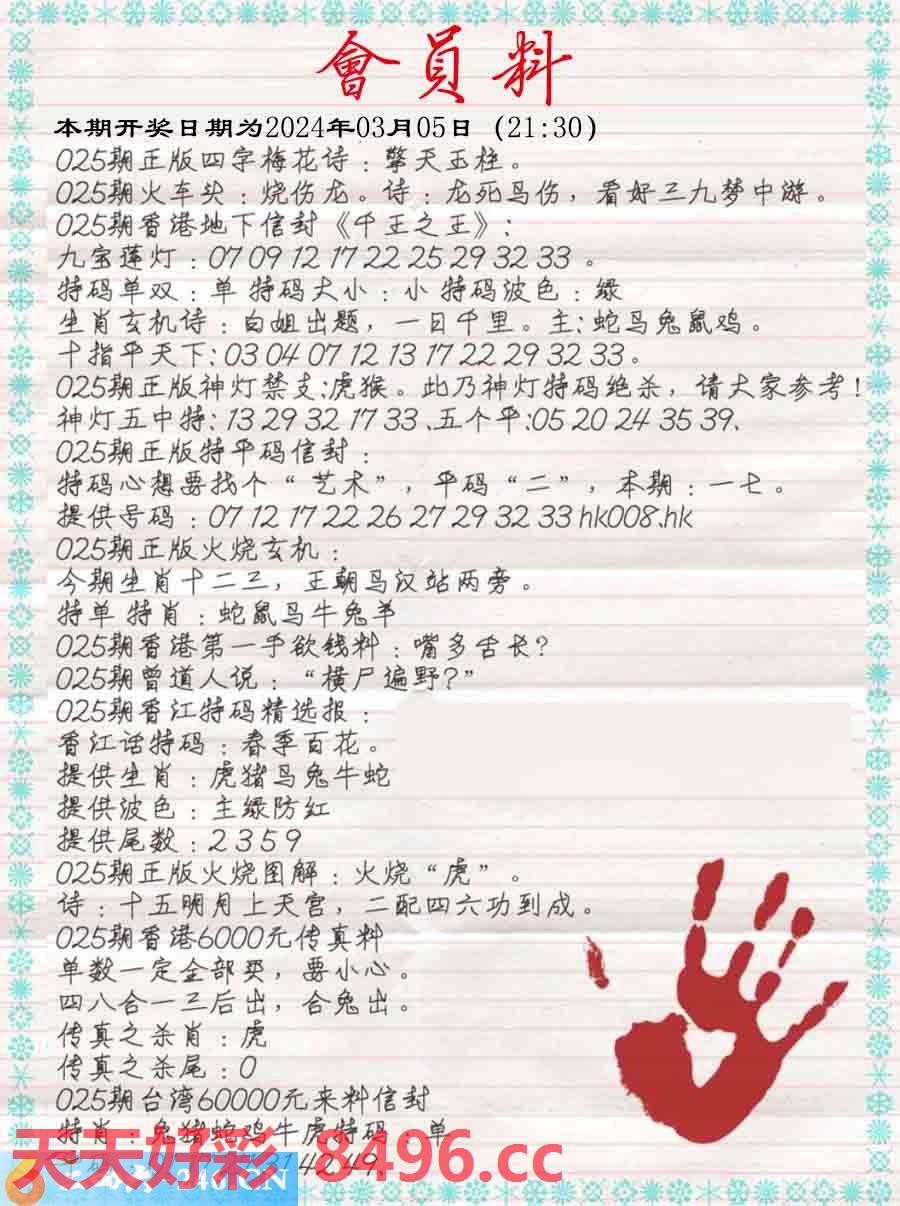 會員料
本期开奖日期为2024年03月05日（21:30）
025期正版四字梅花诗：擎天玉柱。
025期火车头：烧伤龙。诗：龙死鸟伤，看好三九梦中游。
025期香港地下信封《千王之王》:
九宝莲灯：07 09 12 17 22 25 29 32 33 。
特码单双：单 特码大小：小 特码波色：绿
生肖玄机诗：白姐出题，一日千里。主:蛇马兔鼠鸡。
十指平天下:03 04 07 12 13 17 22 29 32 33。
025期正版神灯禁支:虎猴。此乃神灯特码绝杀，请大家参考！
神灯五中特: 13 29 32 17 33 、五个平:05 20 24 35 39、
025期正版特平码信封：
特码心想要找个“艺术”，平码“二”，本期：一七。
提供号码：07 12 17 22 26 27 29 32 33 hk008.hk
025期正版火烧玄机：
今期生肖十二三，王朝马汉站两旁。
特单 特肖：蛇鼠马牛兔羊
025期香港第一手欲钱料：嘴多舌长？
025期曾道人说：“横尸遍野？”
025期香江特码精选报：
香江话特码：春季百花。
提供生肖：虎猪马兔牛蛇
提供波色：主绿防红
提供尾数：2 3 5 9
025期正版火烧图解：火烧“虎”。
诗：十五明月上天宫，二配四六功到成。
025期香港6000元传真料
单数一定全部买，要小心。
四八合一三后出，合兔出。
传真之杀肖：虎
传真之杀尾：0
025期台湾60000元来料信封
特肖：兔猪蛇鸡牛虎特码：单
天天好彩 8496.cc
246.CN